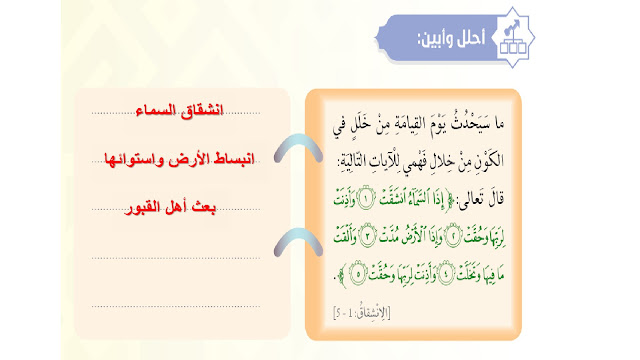 أحلل وأبين:
ما سَيَحْدُثُ يَوْمَ القِيامَةِ مِنْ خَلَلٍ في
الكَوْنِ مِنْ خِلالِ فَهْمي لِلْآياتِ التّالِيَةِ:
قالَ تَعالى: ﴿ إِذَا ٱلسَّمَآءُ ٱنشَقَّتْ ١ وَأَذِنَتْ
لِرَبِّهَا وَحُقَّتْ ٢ وَإِذَا ٱلْأَرْضُ مُدَّتْ ٣ وَأَلْقَتْ
مَا فِيهَا وَتَخَلَّتْ ٤ وَأَذِنَتْ لِرَبِّهَا وَحُقَّتْ ٥ ﴾.
[الِانْشِقاقُ: 1 - 5]
انشقاق السماء
انبساط الأرض واستوائها
بعث أهل القبور